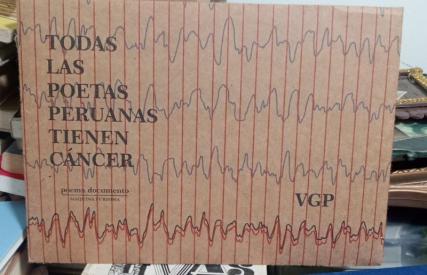 TODAS
LAS
POETAS
PERUANAS
TIENEN
CÁNCER
poema documento
MÁQUINA PURÍSIMA
VGP